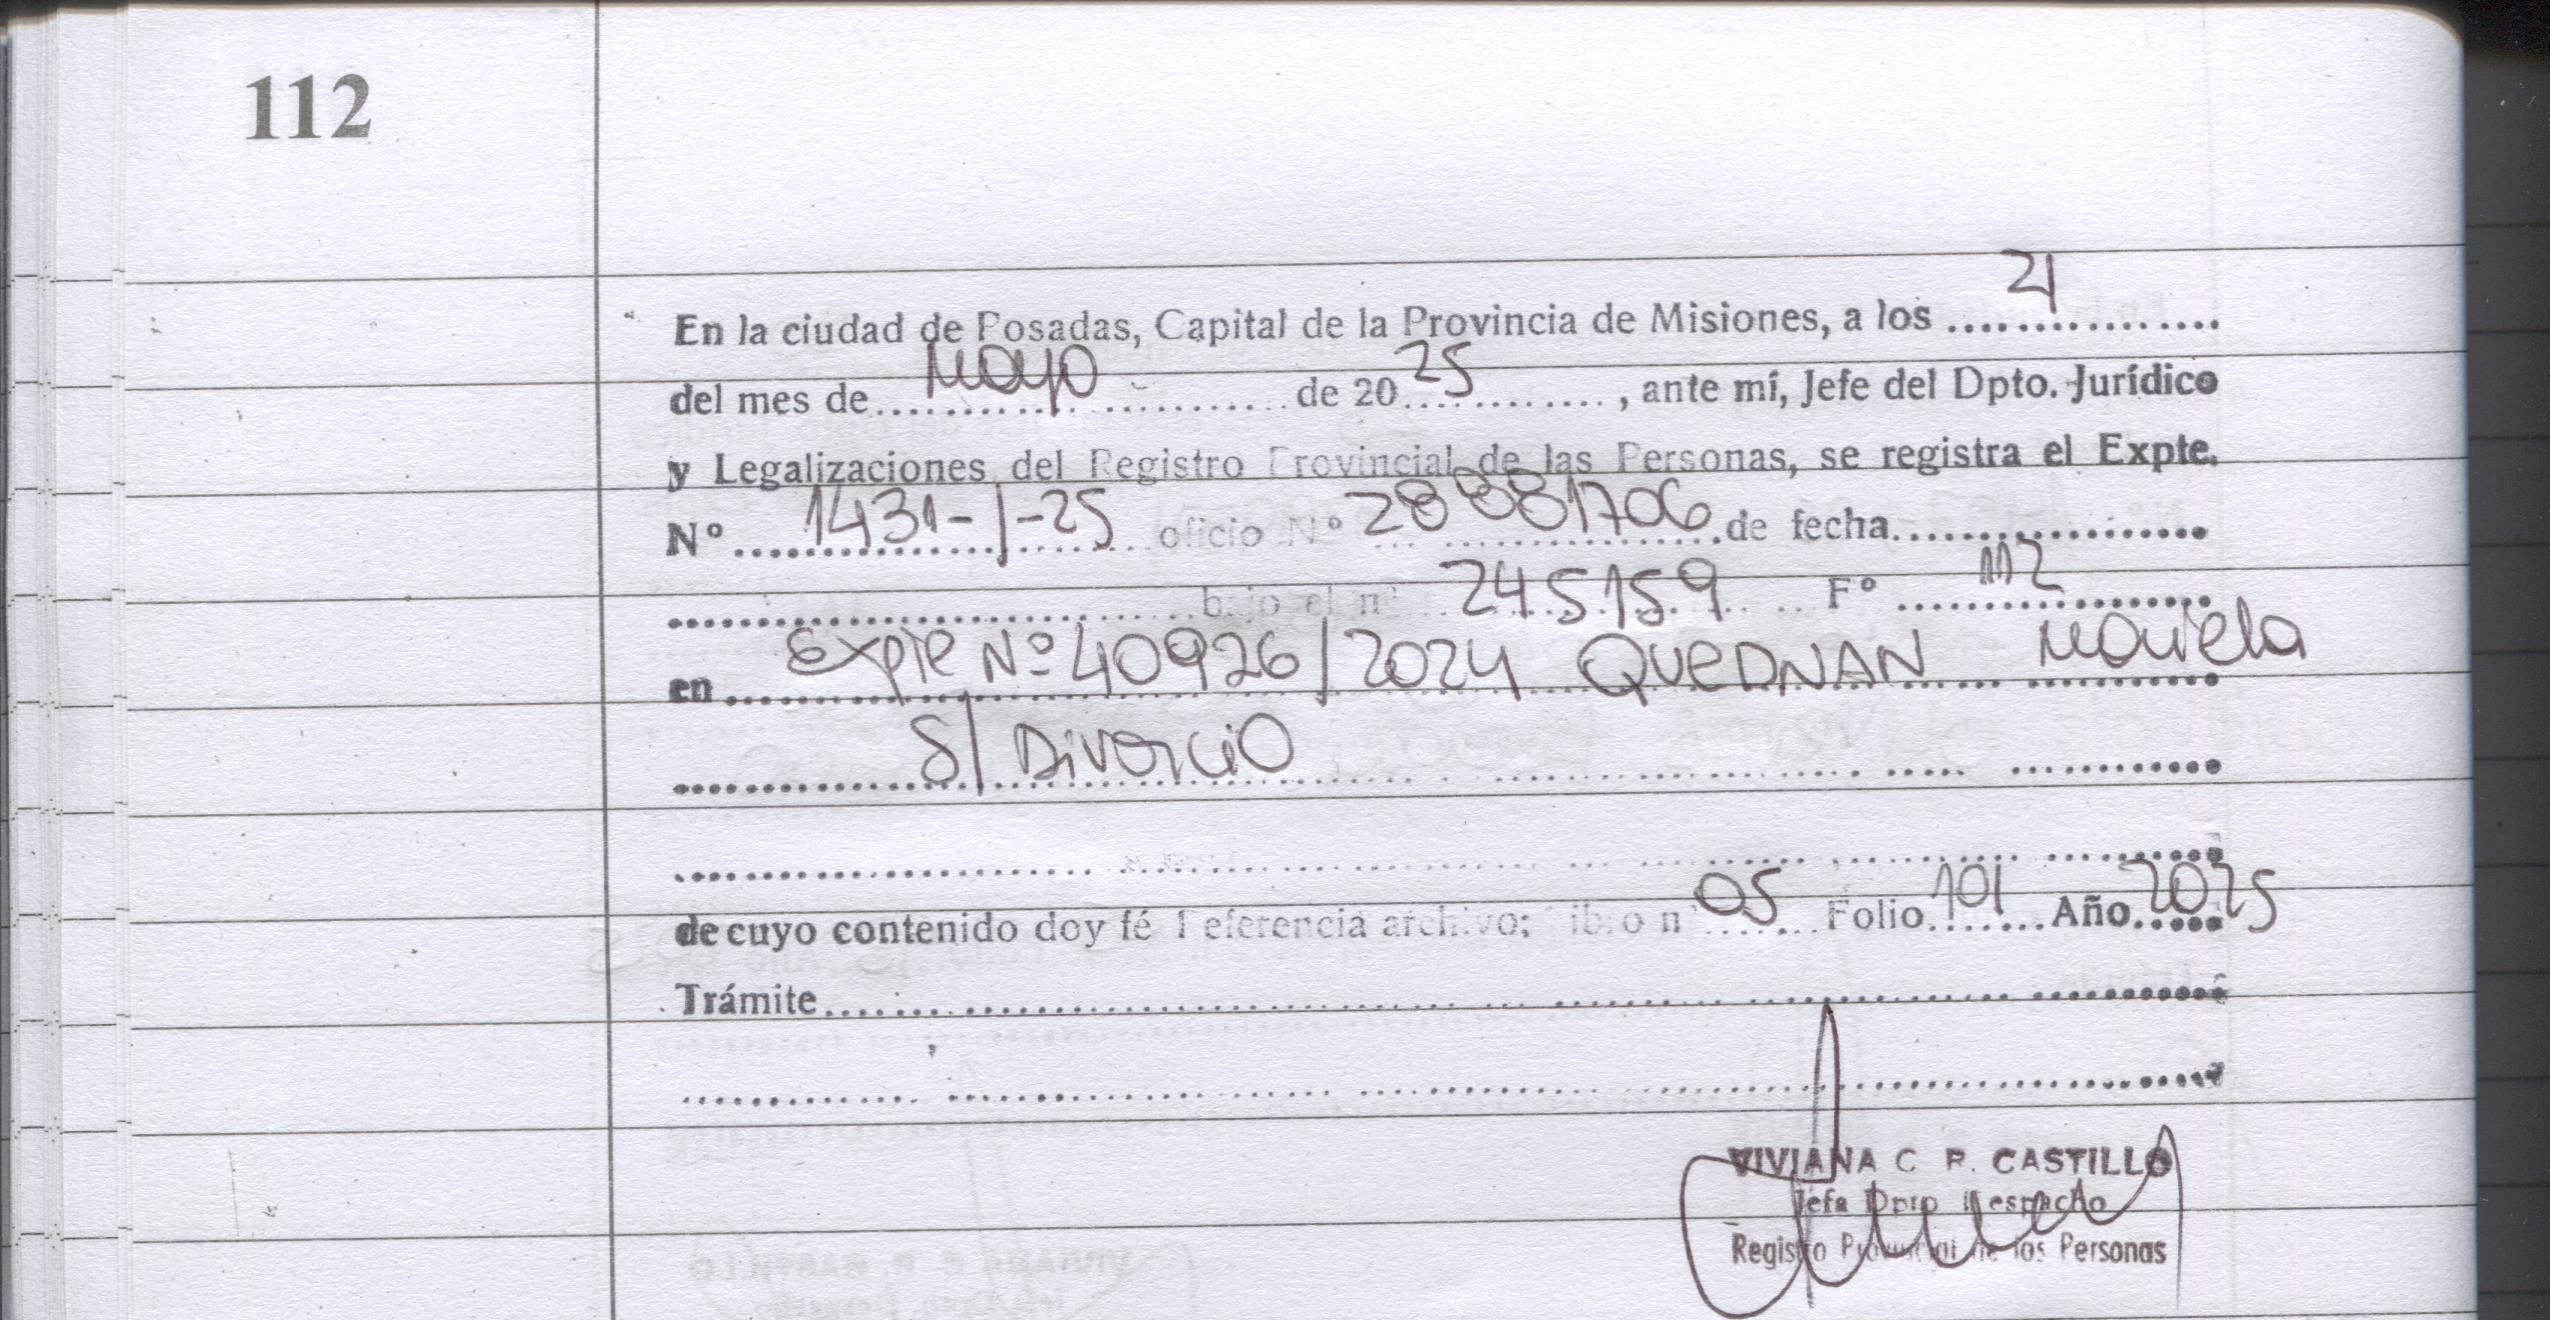 112
En la ciudad de Posadas, Capital de la Provincia de Misiones, a los 21
del mes de Mayo de 2025, ante mí, Jefe del Dpto. Jurídico
y Legalizaciones del Registro Provincial de las Personas, se registra el Expte.
Nº 1431-J-25 oficio Nº 28881706 de fecha
bajo el nº 245159 Fº 112
en Expte Nº 40926/2024 QUEDNAN Mariela
S/ Divorcio
de cuyo contenido doy fé Referencia archivo; Libro nº 05 Folio 101 Año 2025
Trámite
VIVIANA C R. CASTILLO
Jefa Dpto Despacho
Registro Provincial de las Personas